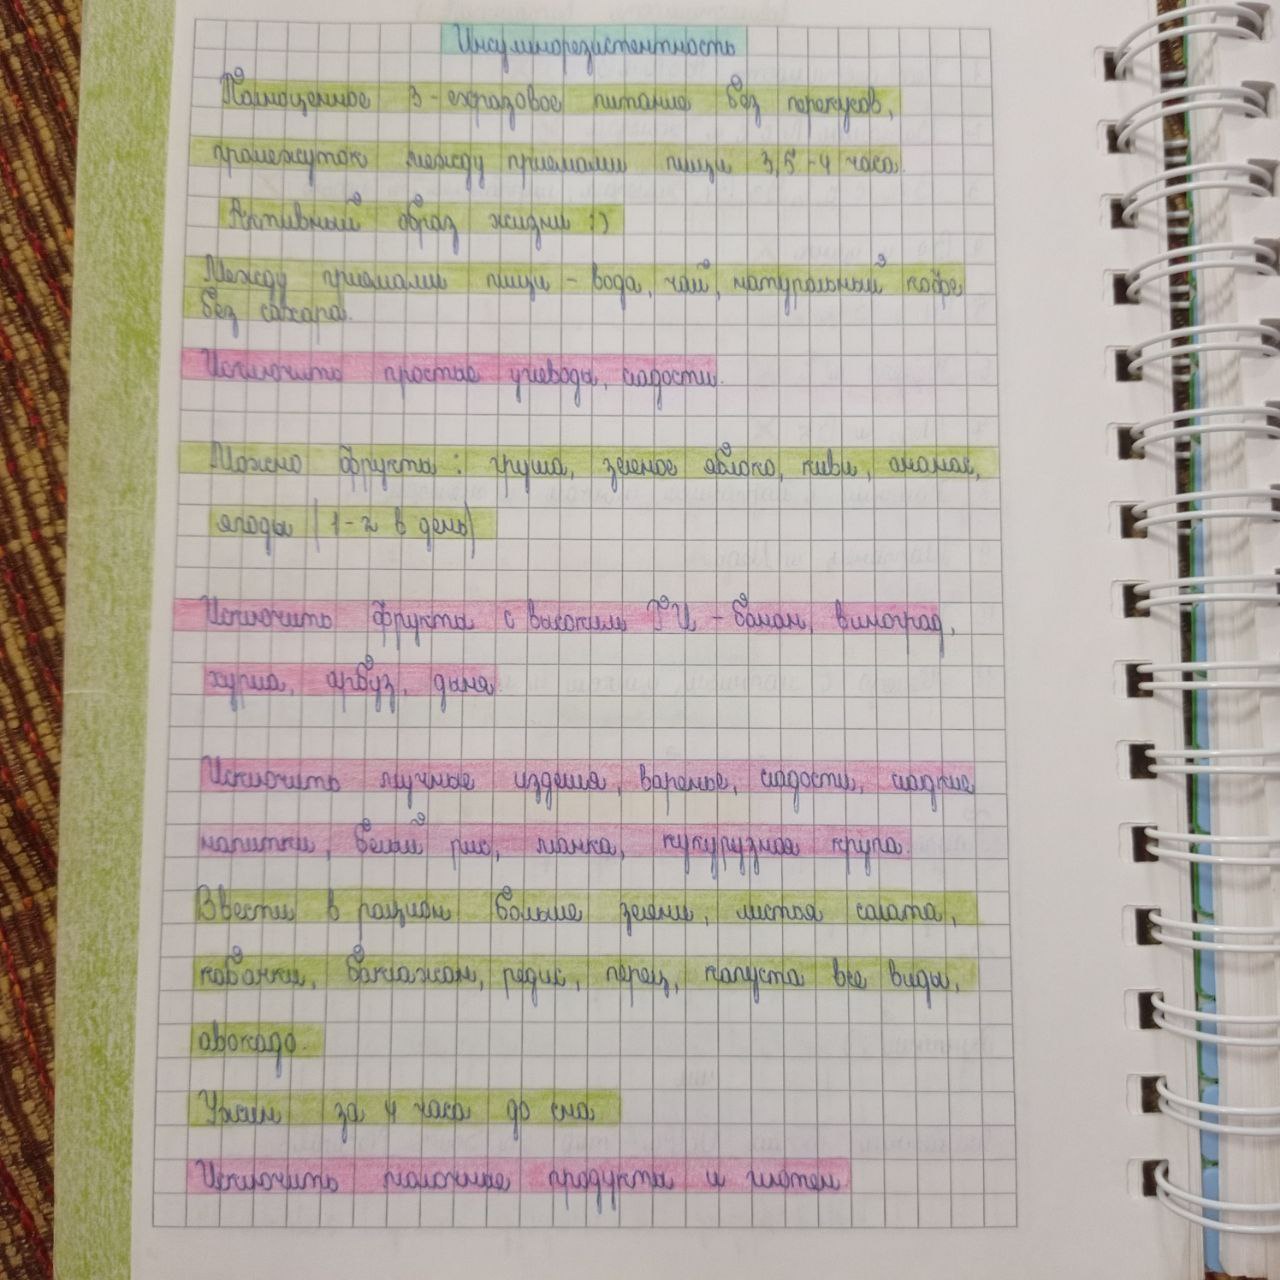 Инсулинорезистентность
Полноценное 3-ехразовое питание без перекусов,
промежуток между приемами пищи 3,5-4 часа.
Активный образ жизни :)
Между приемами пищи - вода, чай, натуральный кофе
без сахара.
Исключить простые углеводы, сладости.
Можно фрукты: груша, зеленое яблоко, киви, ананас,
ягоды (1-2 в день)
Исключить фрукты с высоким ГИ - банан, виноград,
хурма, арбуз, дыня.
Исключить мучные изделия, варенье, сладости, сладкие
напитки, белый рис, манка, кукурузная крупа.
Ввести в рацион больше зелени, листья салата,
кабачки, баклажан, редис, перец, капуста все виды,
авокадо.
Ужин за 4 часа до сна
Исключить молочные продукты и глютен